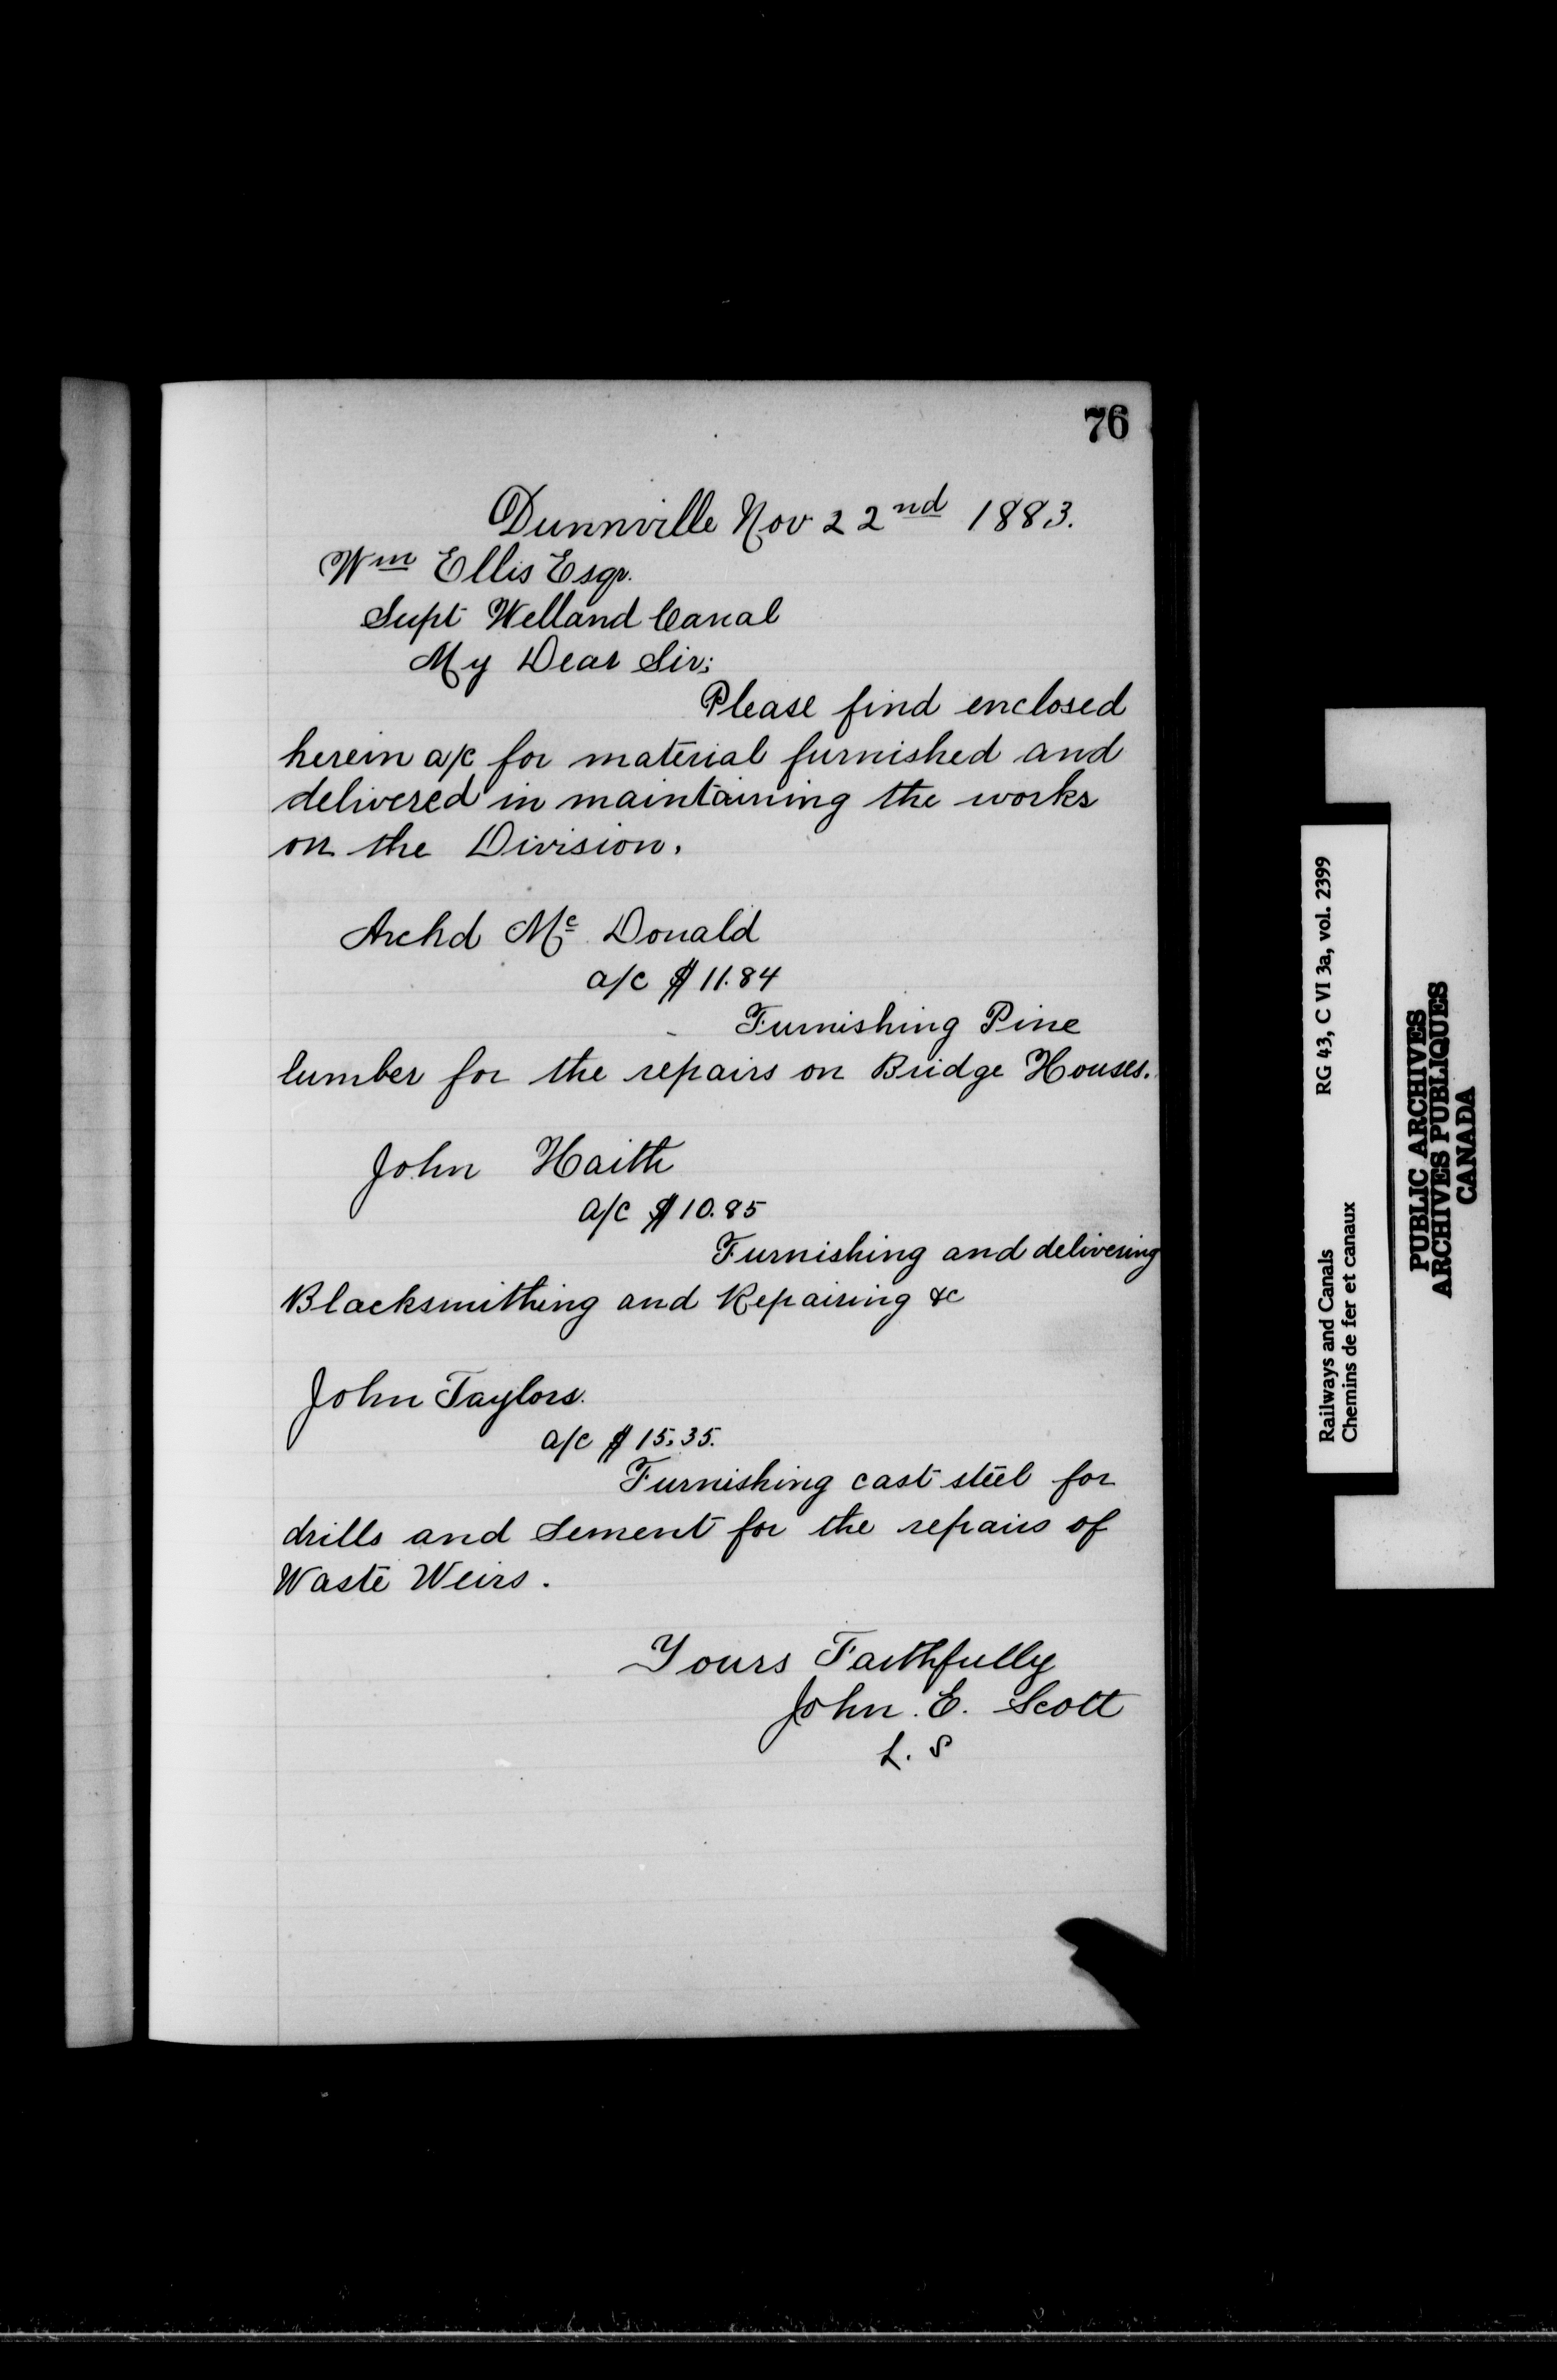 76
Dunnville Nov 22nd 1883.
Wm Ellis Esqr.
Supt Welland Canal
My Dear Sir;
Please find enclosed
herein a/c for material furnished and
delivered in maintaining the works
on the Division.
Archd Mc Donald
a/c $11.84
Furnishing Pine
lumber for the repairs on Bridge Houses.
John Haith
a/c $10.85
Furnishing and delivering
Blacksmithing and Repairing &c
John Taylors.
a/c $15.35.
Furnishing cast steel for
drills and Sement for the repairs of
Waste Weirs.
Yours Faithfully
John. E. Scott
L. S
Railways and Canals RG 43, C VI 3a, vol. 2399
Chemins de fer et canaux
PUBLIC ARCHIVES
ARCHIVES PUBLIQUES
CANADA